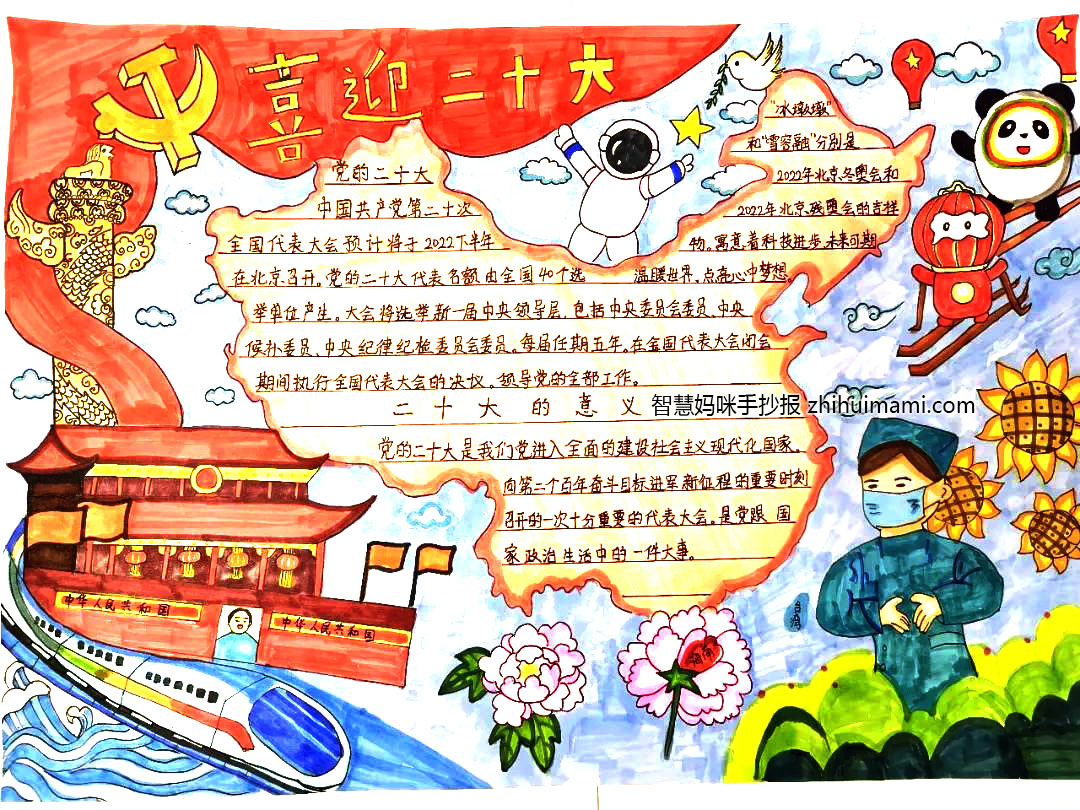 喜迎二十大
党的二十大
中国共产党第二十次
全国代表大会预计将于2022下半年
在北京召开。党的二十大代表名额由全国40个选
举单位产生。大会将选举新一届中央领导层,包括中央委员会委员、中央
候补委员、中央纪律纪检委员会委员。每届任期五年。在全国代表大会闭会
期间执行全国代表大会的决议、领导党的全部工作。
"冰墩墩"
和"雪容融"分别是
2022年北京冬奥会和
2022年北京残奥会的吉祥
物。寓意着科技进步、未来可期
温暖世界、点亮心中梦想。
二十大的意义
智慧妈咪手抄报 zhihuimami.com
党的二十大是我们党进入全面的建设社会主义现代化国家。
向第二个百年奋斗目标进军新征程的重要时刻
召开的一次十分重要的代表大会。是党跟国
家政治生活中的一件大事。
中华人民共和国
中华人民共和国
台湾
海南